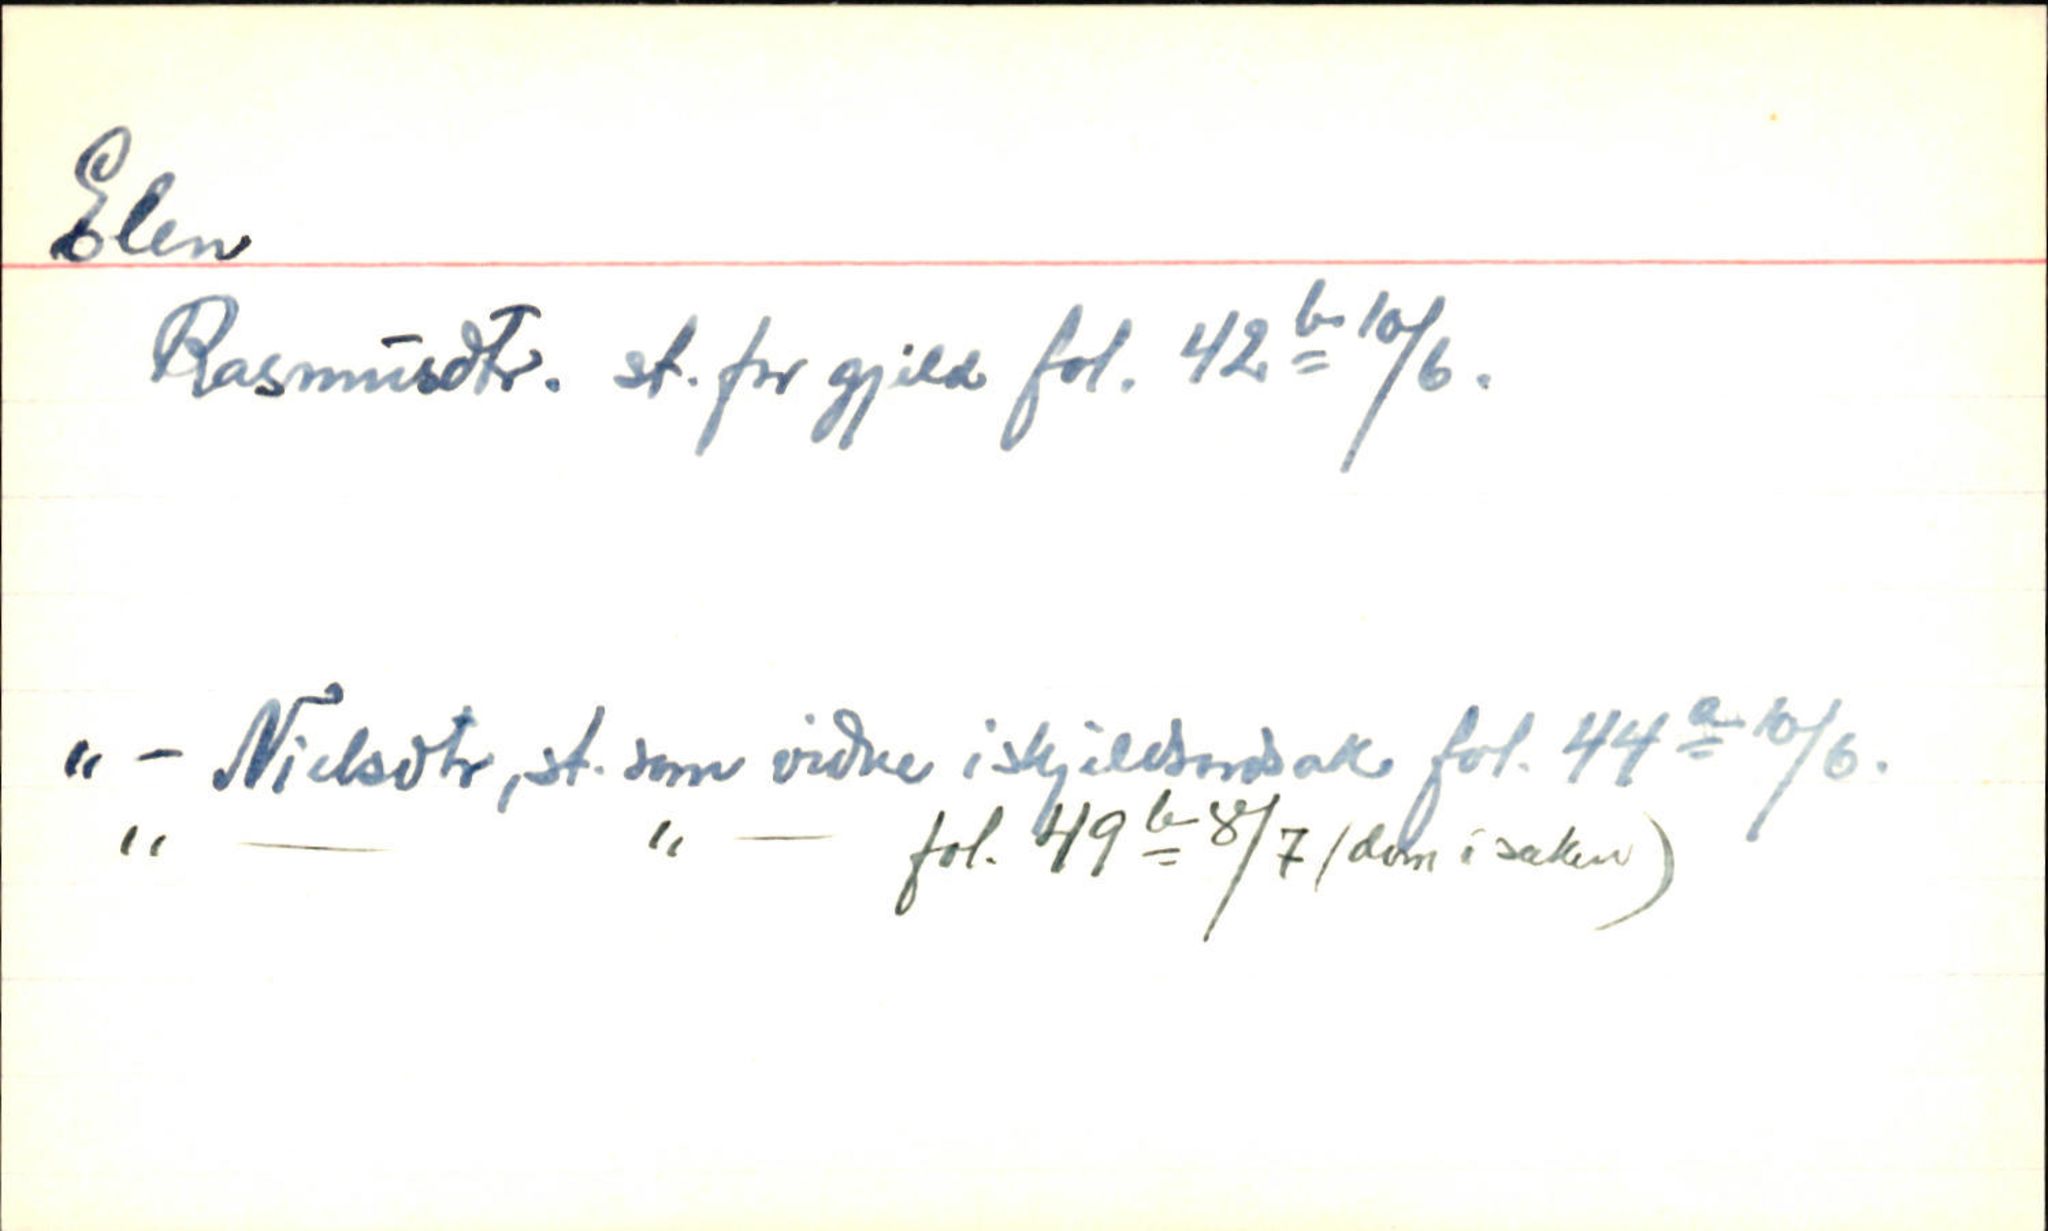 Elen
Rasmusdtr. st. for gjeld fol. 42 b 10/6.
" - Nielsdtr, st. som vidne i skjeldsordsak fol. 44 a 10/6.
" — " — fol. 49 b 8/7 (dom i saken)